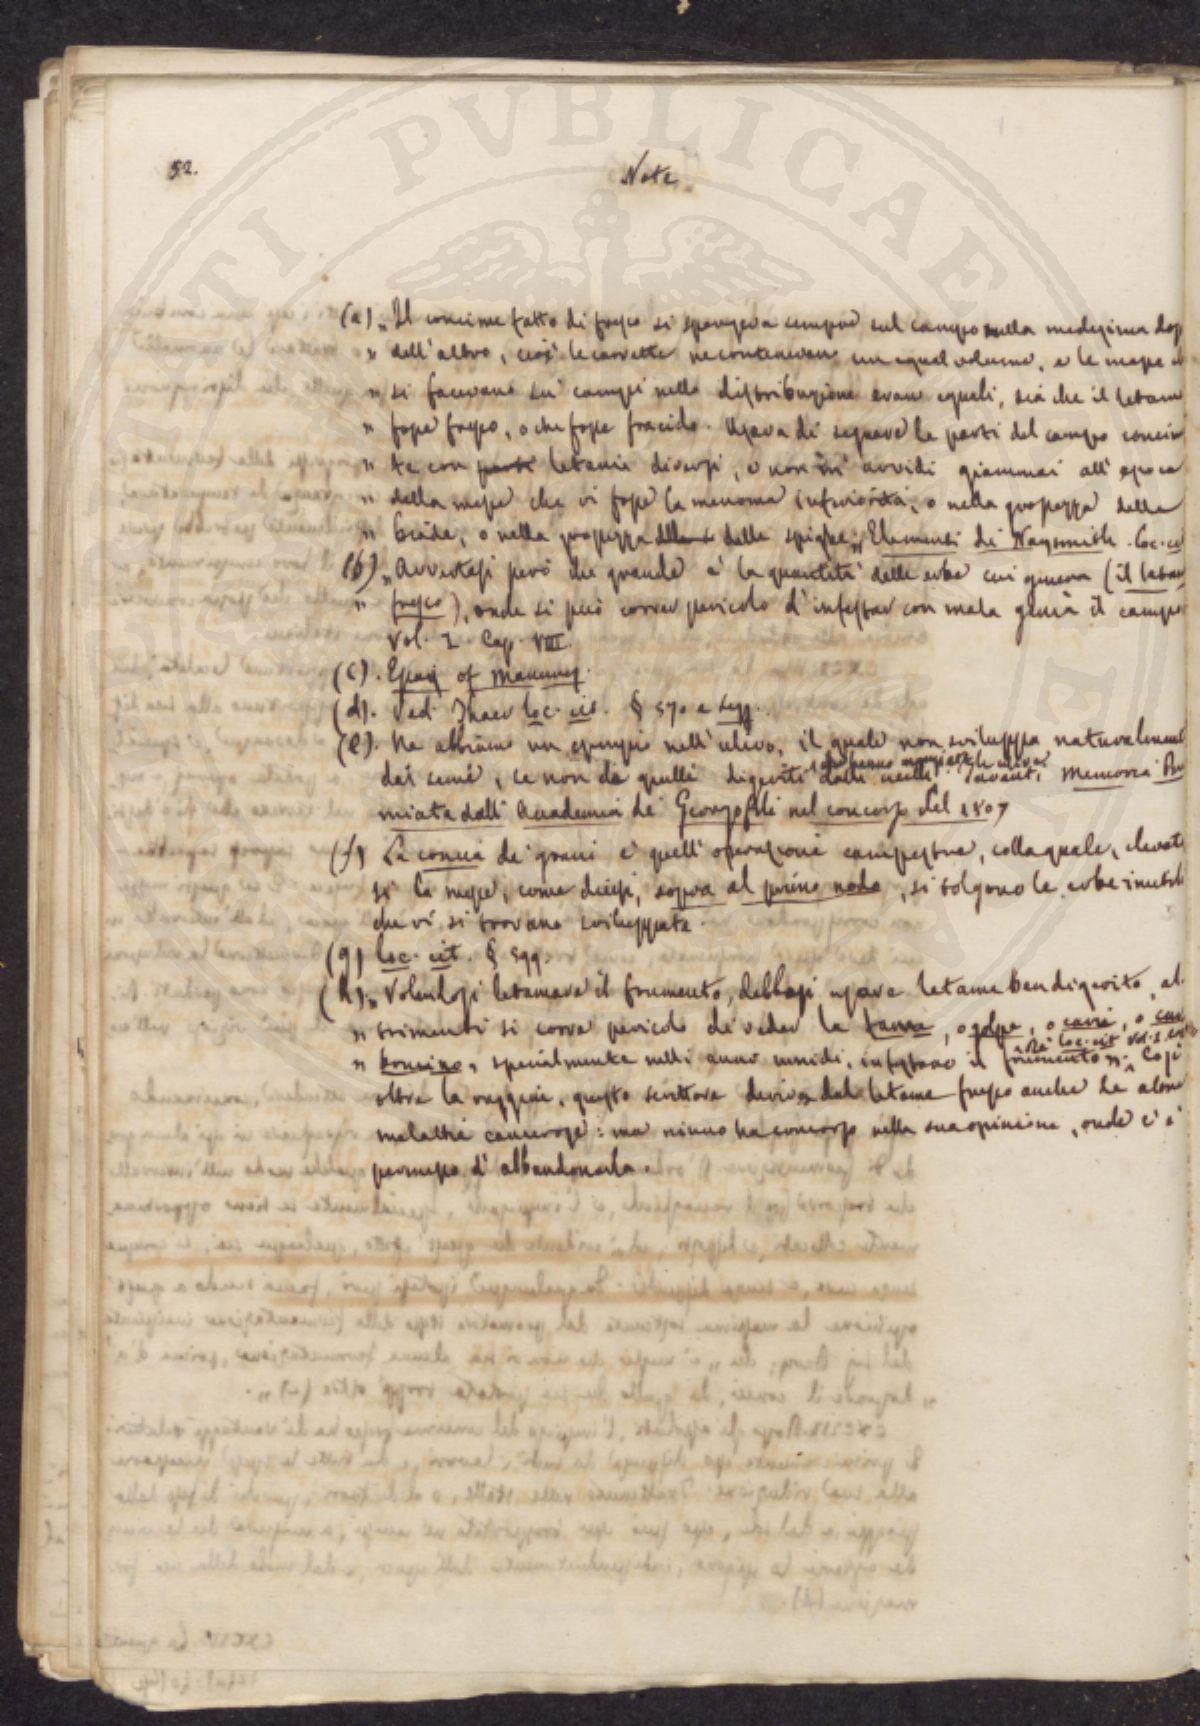 52.
Note
(a) „ Il concime fatto di fresco si spargeva sempre sul campo nella medesima dop
„ dell'altro, cioè le carrette ne contenevan un egual volume, e le masse
„ si facevano sui campi nella distribuzione eran eguali, sia che il letam
„ fosse fresco, o che fosse fracido. Usava di segnare le parti del campo concim
„ te con letamie diversi, e non mi avvidi giammai all'epoca
„ della messe che vi fosse la menoma inferiorità, o nella grossezza della
„ biada, o nella grossezza delle spighe„ Elementi di Naysmith. loc. cit
(b) „ Avvertasi però che grande è la quantità delle erbe cui genera (il letam
„ fresco), onde si può correr pericolo d'infestar con mala genìa il campo
Vol. I. Cap. VIII.
(c). Essay of Manures.
(d). Vedi Thaer loc. cit. § 570 e segg.
(e). Ne abbiamo un esempio nell'ulivo, il quale non sviluppa naturalment
dai semi, se non da quelli digeriti dalli uccelli che hanno mangiate le ulive. Tavanti Memoria Pre
miata dall'Accademia de' Georgofili nel concorso del 1807
(f) La concia de' grani è quell'operazione campestre, colla quale, elevata
si la messe, come dicesi, sopra al primo nodo, si tolgono le erbe inutili
che vi si trovano sviluppate.
(g) loc. cit. § 599.
(h) „ Volendosi letamare il frumento, debbasi usare letame ben digerito, al
„ trimenti si corre pericolo di veder la , o golpe, o carie, o
„ , specialmente nelli anni umidi, infestare il frumento „. Ré loc. cit Vol. I. Così
oltre la ruggine, questo scrittore deriva dal letame fresco anche le altre
malattie cancerose: ma niuno ha concorso nella sua opinione, onde c'è
permesso d'abbandonarla.